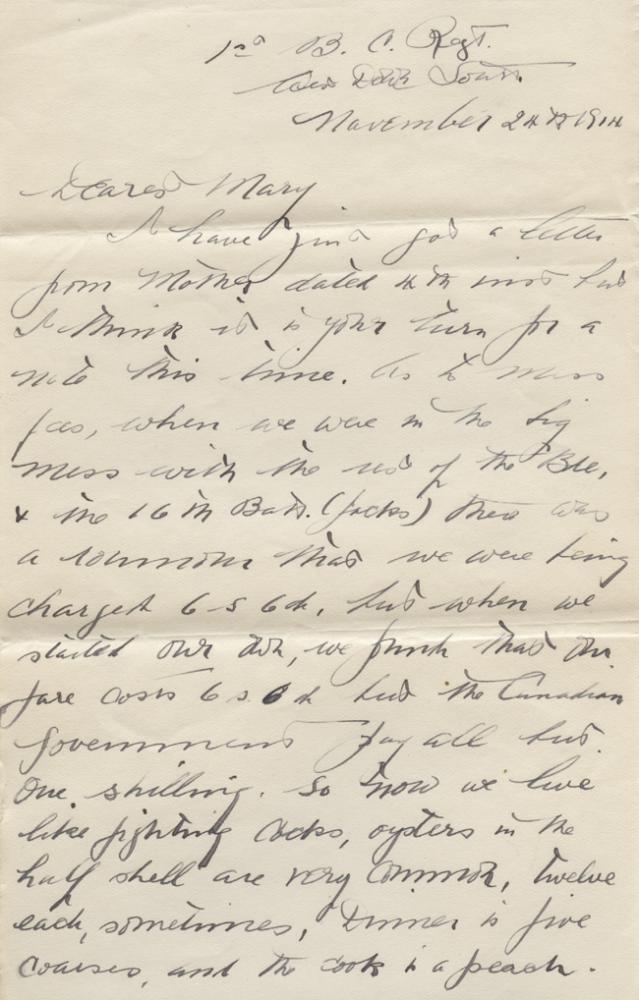 1st B. C. Regt.
Lark Hill South
November 24th 1914
Dearest Mary
I have just got a letter
from Mother dated 4th inst but
I think it is your turn for a
note this time. As to mess
fees, when we were in the big
mess with the rest of the Bde,
& the 16th Batt. (Jocks) there was
a rumour that we were being
charged 6 s 6d, but when we
started our own, we found that our
fare costs 6 s 6d but the Canadian
Government pay all but
one shilling. So now we live
like fighting cocks, oysters in the
half shell are very common, twelve
each, sometimes, Dinner is five
courses, and the cook is a peach.